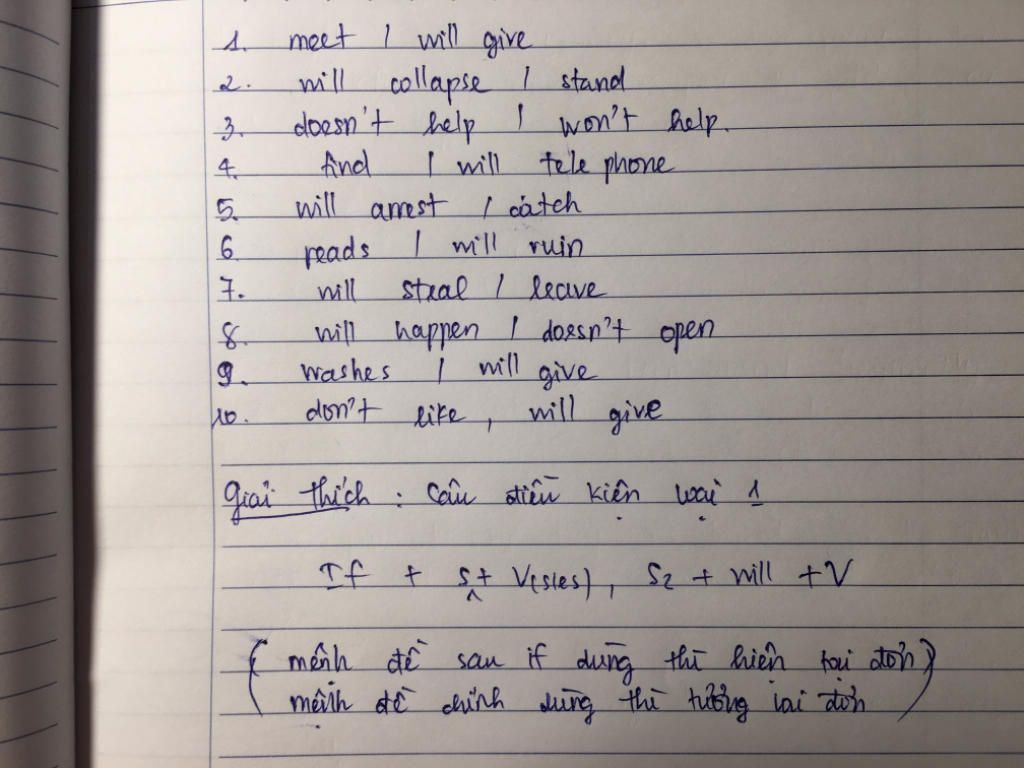 1. meet / will give
2. will collapse / stand
3. doesn't help / won't help.
4. find / will telephone
5. will arrest / catch
6 reads / will ruin
7. will steal / leave
8. will happen / doesn't open
9. washes / will give
10. don't like, will give
Giải thích : Câu điều kiện loại 1
If + S1 + V(s/es), S2 + will + V
(mệnh đề sau if dùng thì hiện tại đơn)
mệnh đề chính dùng thì tương lai đơn